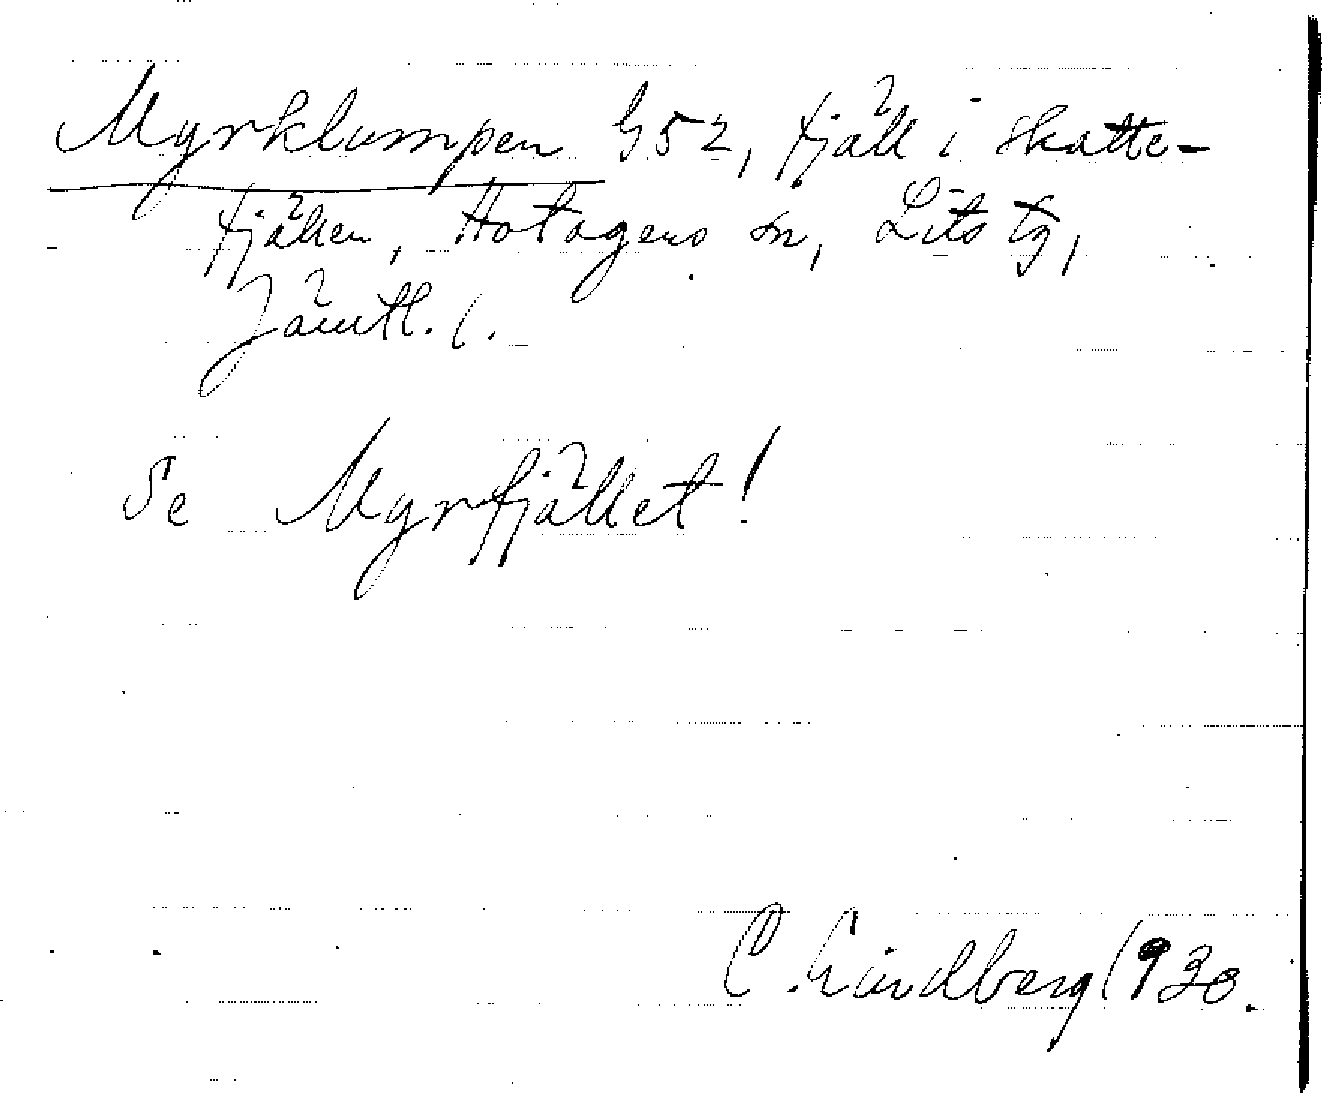 Myrklumpen 952, fjäll i Skatte-
fjällen, Hotagens sn, Lits tg,
Jämtl. l.
Se Myrfjället!
C. Lindberg 1930.